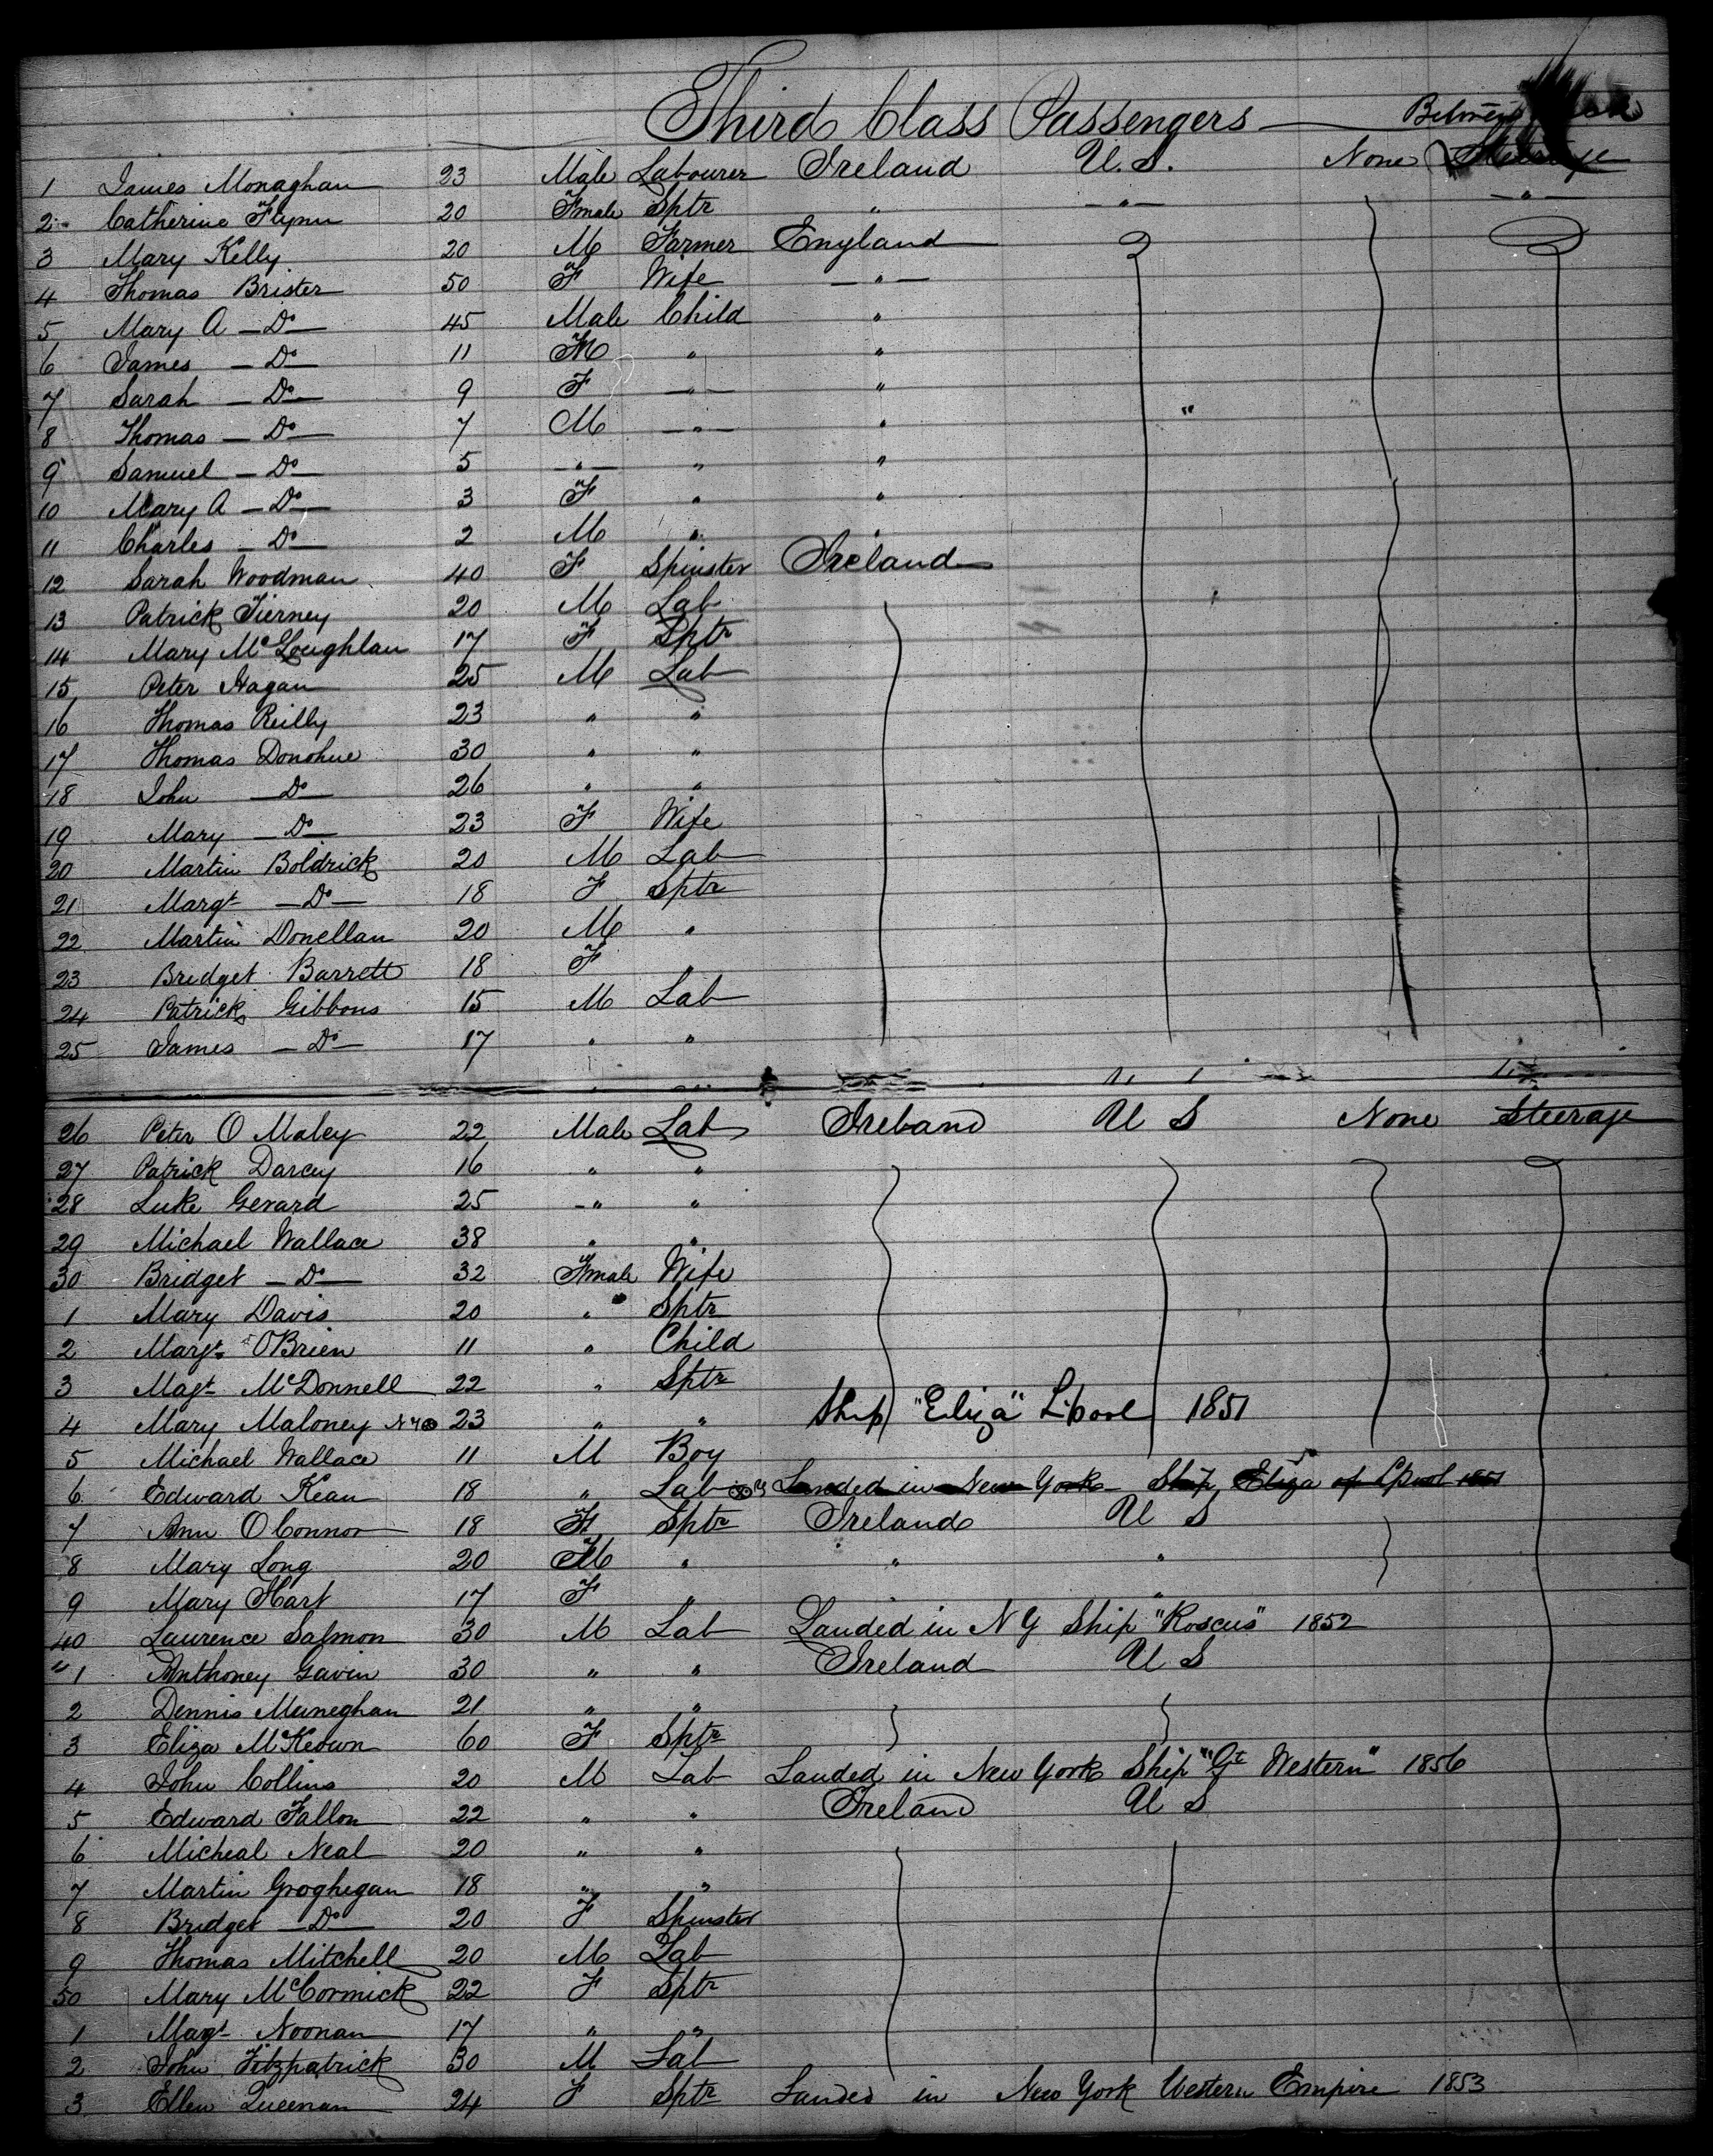 Third Class Passengers
1 James Monaghan 23 Male Labourer Ireland U.S. None Steerage
2 Catherine Flynn 20 Fmale Sptr " — " — — " —
3 Mary Kelly 20 M Farmer England
4 Thomas Brister 50 F Wife — " —
5 Mary A — Do — 45 Male Child "
6 James — Do — 11 M " "
7 Sarah — Do — 9 F — " — "
8 Thomas — Do — 7 M — " — " "
9 Samuel — Do — 5 — " — " "
10 Mary A — Do — 3 F " "
11 Charles — Do — 2 M " "
12 Sarah Woodman 40 F Spinster Ireland
13 Patrick Tierney 20 M Lab
14 Mary McLoughlan 17 F Sptr
15 Peter Hagan 25 M Lab
16 Thomas Reilly 23 " "
17 Thomas Donohue 30 " "
18 John — Do — 26 " "
19 Mary — Do — 23 F Wife
20 Martin Boldrick 20 M Lab
21 Margt — Do — 18 F Sptr
22 Martin Donellan 20 M "
23 Bridget Barrett 18 F "
24 Patrick Gibbons 15 M Lab
25 James — Do — 17 " "
26 Peter O Maley 22 Male Lab Ireland U S None Steerage
27 Patrick Darcey 16 " "
28 Luke Gerard 25 - " "
29 Michael Wallace 38 " "
30 Bridget — Do — 32 Fmale Wife
1 Mary Davis 20 " Sptr
2 Margt OBrien 11 " Child
3 Magt McDonnell 22 " Sptr
4 Mary Maloney 23 " " Ship "Eliza" L'pool 1851
5 Michael Wallace 11 M Boy
6 Edward Kean 18 " Lab Landed in New York Ship Eliza of Lpool 1851
7 Ann OConnor 18 F Sptr Ireland U S
8 Mary Long 20 M " " "
9 Mary Hart 17 F " "
40 Laurence Salmon 30 M Lab Landed in N Y Ship "Roscus" 1852
1 Anthoney Gavin 30 " " Ireland U S
2 Dennis Muneghan 21 " "
3 Eliza McKeown 60 F Sptr
4 John Collins 20 M Lab Landed in New York Ship "Gt Western" 1856
5 Edward Fallon 22 " " Ireland U S
6 Micheal Neal 20 " "
7 Martin Groghegan 18 " "
8 Bridget — Do — 20 F Spinster
9 Thomas Mitchell 20 M Lab
50 Mary McCormick 22 F Sptr
1 Magt Noonan 17 " "
2 John Fitzpatrick 30 M Lab
3 Ellen Queenan 24 F Sptr Landed in New York Western Empire 1853